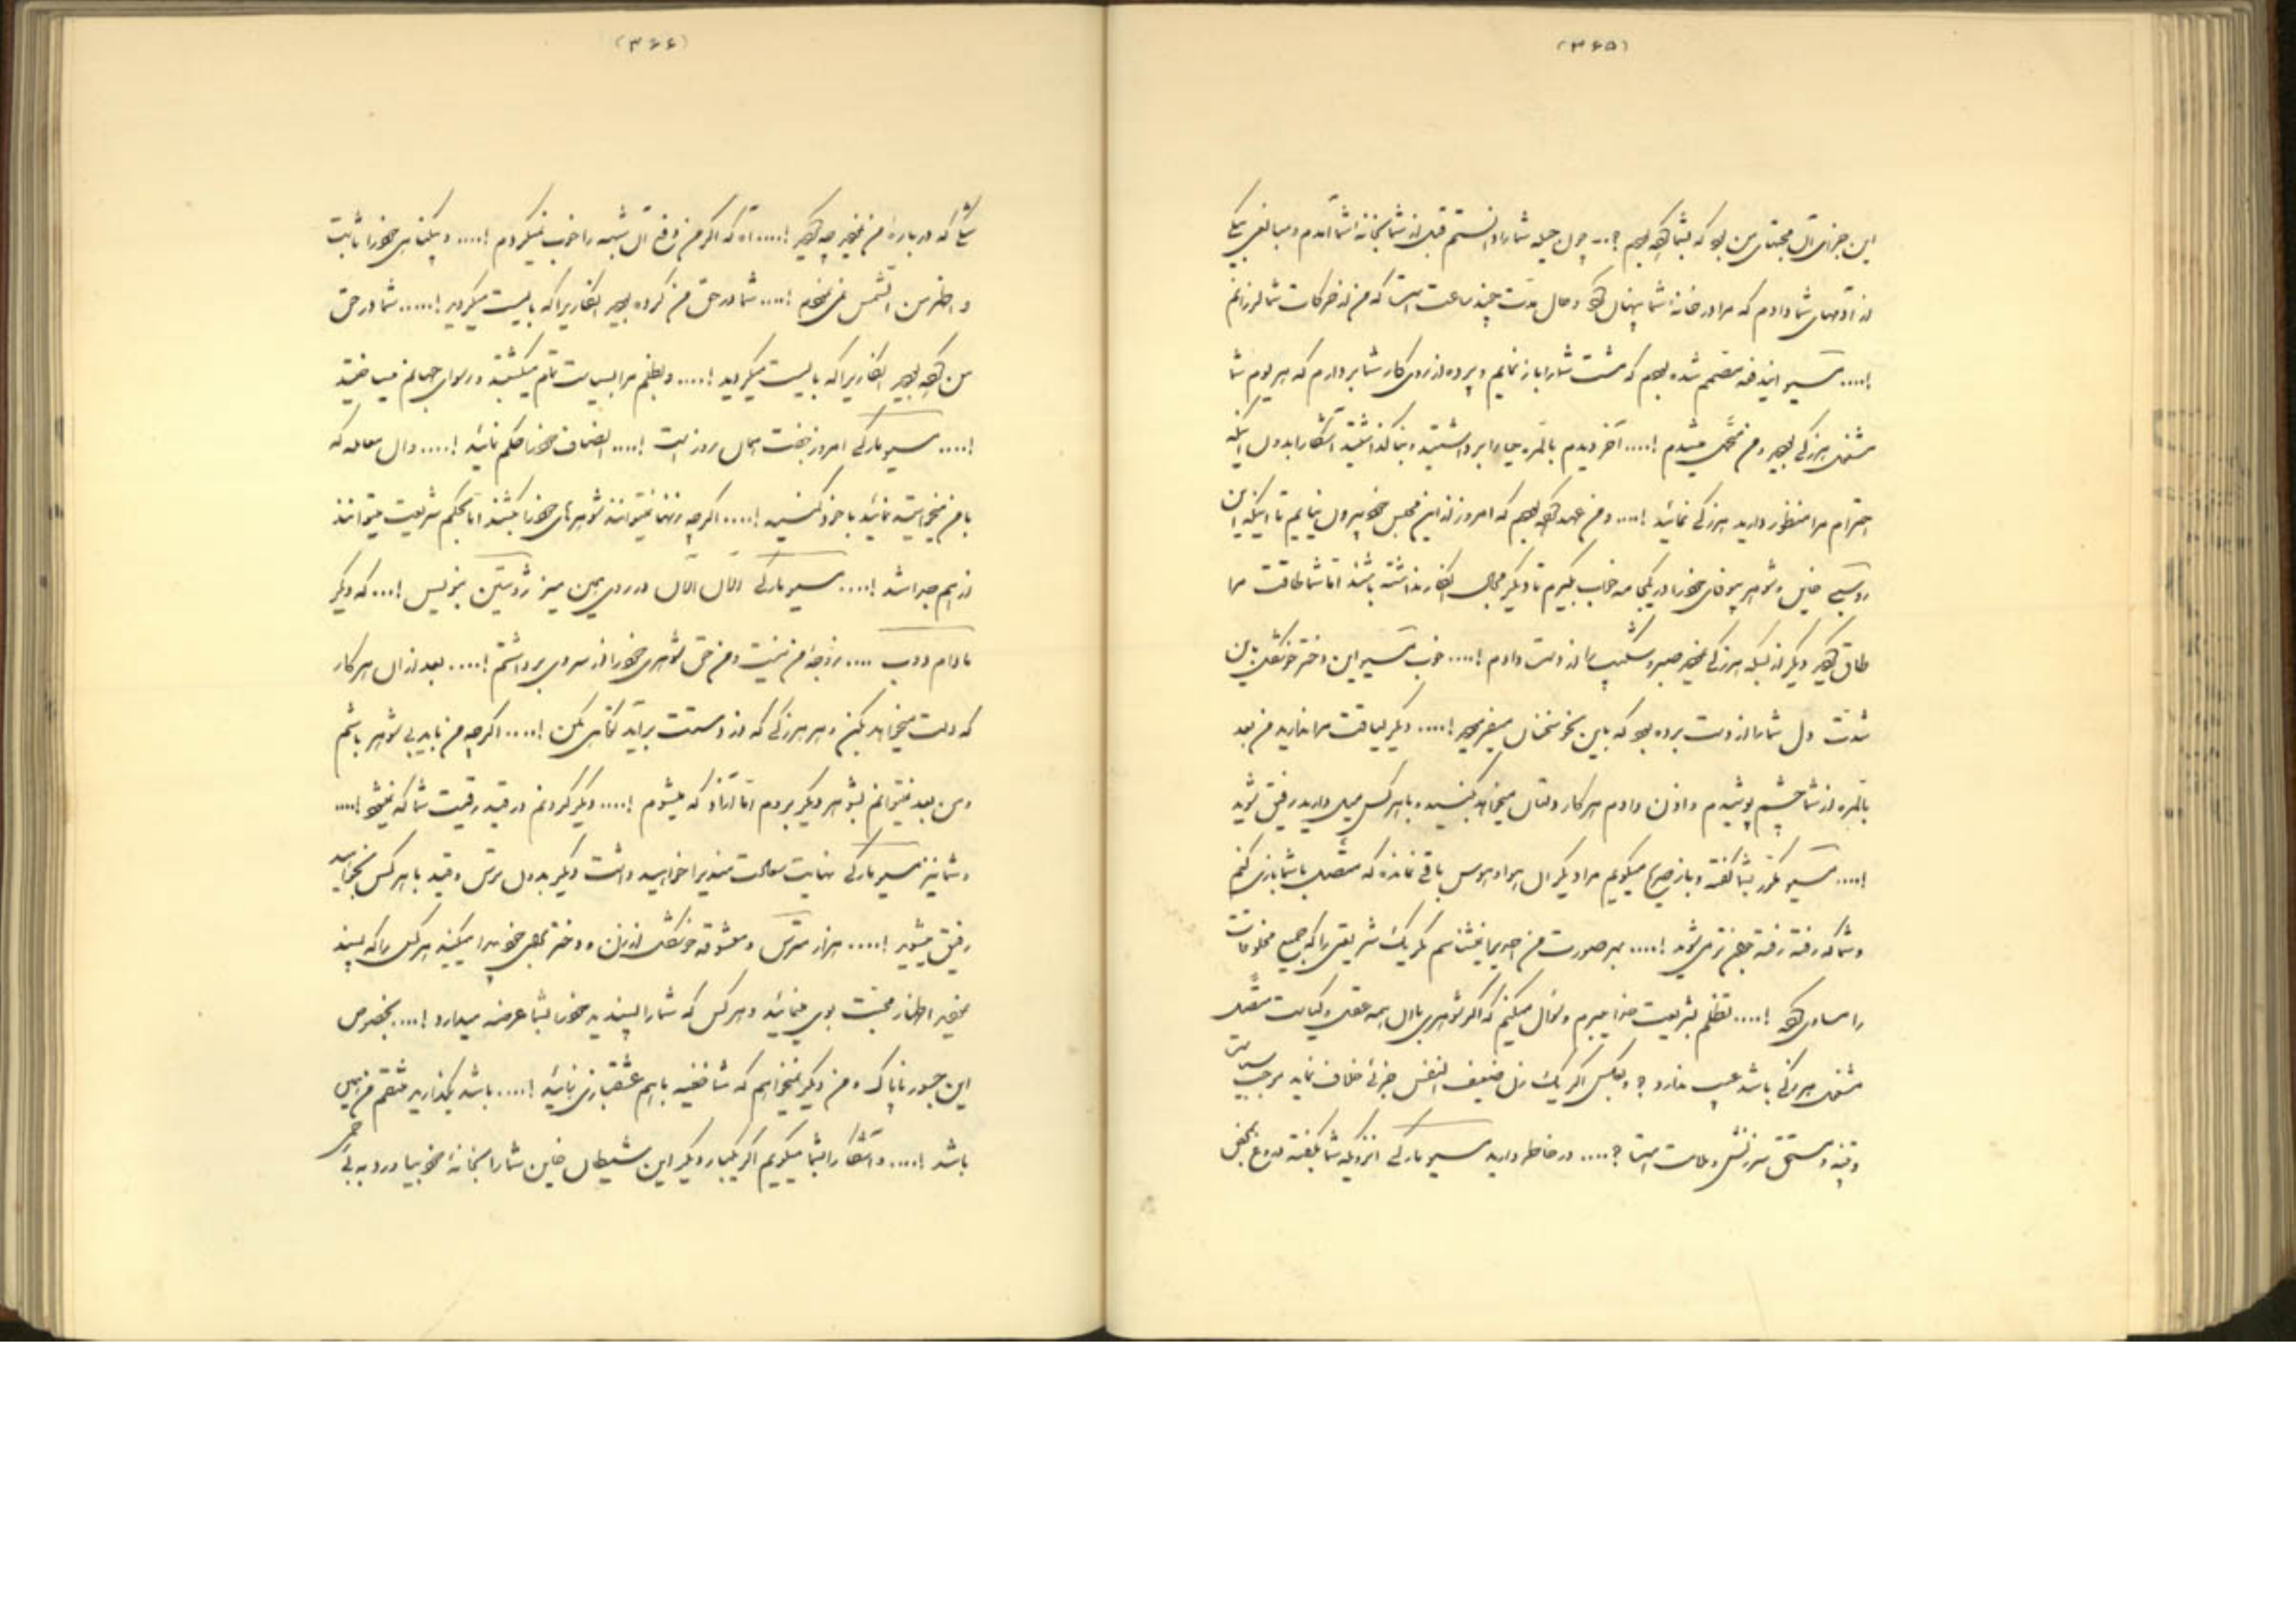 (۳۶۵)
این جزای آن محبتهای من بود که بشما کرده بودم ؟... چون حیله شما را دانستم قبل از شما بخانه شما آمدم و مبالغی
از آدمهای شما دادم که مرا در خانهٔ شما پنهان کرد و حال مدت چند ساعت است که من از حرکات شما لرزانم
!.... مسیو ایندفعه مصمم شده بودم که مشت شما را باز نمایم و پرده از روی کار شما بردارم که هر یوم شما
مشغول هرزگی بودید و من متحمل میشدم !.... آخر دیدم بالمره حیا را برداشتید و بنا گذاشتید آشکارا بدون اینکه
احترام مرا منظور دارید هرزگی نمائید !.... و من عهد کرده بودم که امروز از این محبس خود بیرون نیایم تا اینکه این
خاین و شوهر بیوفای خود را در یکجامه خواب بگیرم تا دیگر مجال انکار نداشته باشند اما شما طاقت مرا
طاق کردید دیگر از بسکه هرزگی نمودید صبر و شکیب را از دست دادم !.... خوب مسیو این دختر خوشگل
شدت دل شما را از دست برده بود که باین نحو سخنان میفرمودید !.... دیگر لیاقت مرا ندارید من بعد
بالمره از شما چشم پوشیدم و اذن دادم هر کار دلتان میخواهد بکنید و با هر کس میل دارید رفیق شوید
!.... مسیو مکرر بشما گفته و باز صریح میگویم مرا دیگر آن هوا و هوس باقی نمانده که متصل با شما بازی کنم
و شما که رفته رفته جوانتر میشوید !.... بهر صورت من احدیرا نمیشناسم مگر یک شریعتی را که جمیع مخلوقات
را مساوی کرده !.... تظلم بشریعت خدا میبرم و سؤال میکنم که اگر شوهری با آن همه عقل و کیاست متصل
مشغول هرزگی باشد عیب ندارد ؟ و بعکس اگر یک زن ضعیف النفس جزئی خلاف نماید موجب سیاست
و تنبیه و مستحق سرزنش و ملامت است ؟.... در خاطر دارید مسیو مارکی آنروزیکه شما بگفته دروغ
(۳۶۶)
که درباره من نمودید چه کردید !.... آه که اگر من رفع آن شبهه را خوب نمیکردم !.... و بیگناهی خود را ثابت
و اظهر من الشمس نمی‌نمودم !.... شما در حق من کرده بودید آنکاریرا که بایست میکردید !..... شما در حق
من کرده بودید آنکاریرا که بایست میکردید !.... و بظلم مرا بسیاست تام میکشتید و رسوای جهانم میساختید
!.... مسیو مارکی امروز نوبت همان روز است !.... انصاف خود را حکم نمائید !.... و آن معامله که
با من میخواستید نمائید با خود کنید !.... اگرچه زنها نمیتوانند شوهرهای خود را بکشند اما بحکم شریعت میتوانند
از هم جدا شد !.... مسیو مارکی الآن الآن در روی همین میز ژوستین بنویس !... که دیگر
مادام دوب .... زوجهٔ من نیست و من حق شوهری خود را از سر وی برداشتم !.... بعد از آن هر کار
که دلت میخواهد بکن و هر هرزگی که از دستت برآید کوتاهی مکن !.... اگرچه من باید بی شوهر باشم
و من بعد نمیتوانم بشوهر دیگر بروم اما آزاد که میشوم !.... دیگر گردنم در قید رقیت شما که نمیشود !....
و شما نیز مسیو مارکی نهایت معاملت مندیرا خواهید داشت دیگر بدون ترس و قید با هر کس بخواهید
رفیق میشوید !.... هزار مترس و معشوقه خوشگل از زن و دختر بمیل خود پیدا میکنید هر کس را که پسند
نمودید اظهار محبت بوی مینمائید و هر کس که شما را پسندید خود را بشما عرضه میدارد !.... بخصوص
این جسور ناپاک و من دیگر نمیخواهم که شما خفیه با هم عشقبازی نمائید !.... باشد بگذارید منتقم من همین
باشد !.... و آشکارا بشما میگویم اگر یکبار دیگر این شیطان خاین شما را بخانهٔ خود بیاورد